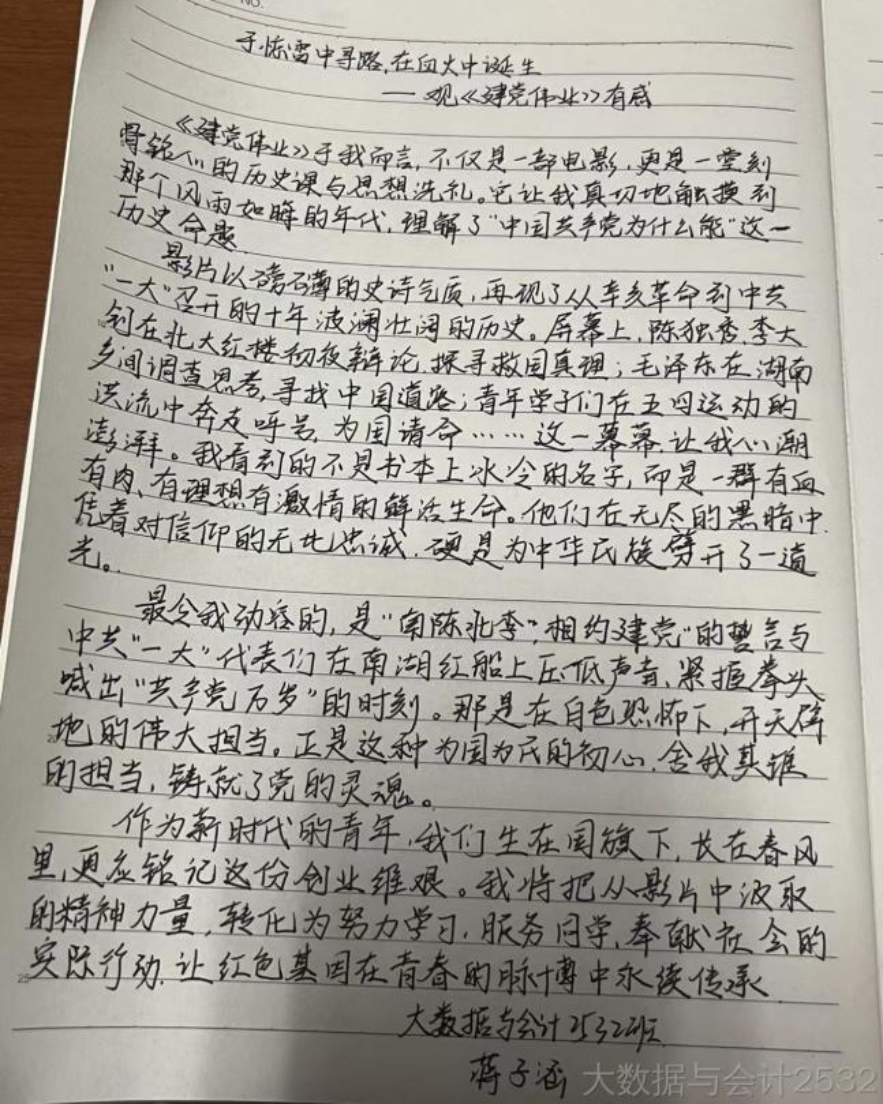 NO.
于惊雷中寻路,在血火中诞生
——观《建党伟业》有感
《建党伟业》于我而言,不仅是一部电影,更是一堂刻
骨铭心的历史课与思想洗礼。它让我真切地触摸到
那个风雨如晦的年代,理解了“中国共产党为什么能”这一
历史命题
影片以磅礴的史诗气质,再现了从辛亥革命到中共
“一大”召开的十年波澜壮阔的历史。屏幕上,陈独秀、李大
钊在北大红楼彻夜辩论,探寻救国真理;毛泽东在湖南
乡间调查思考,寻找中国道路;青年学子们在五四运动的
洪流中奔走呼号,为国请命……这一幕幕,让我心潮
澎湃。我看到的不是书本上冰冷的名字,而是一群有血
有肉、有理想有激情的鲜活生命。他们在无尽的黑暗中,
凭着对信仰的无比忠诚,硬是为中华民族劈开了一道
光。
最令我动容的,是“南陈北李”,相约建党”的誓言与
中共“一大”代表们在南湖红船上压低声音、紧握拳头
喊出“共产党万岁”的时刻。那是在白色恐怖下,开天辟
地的伟大担当。正是这种为国为民的初心,舍我其谁
的担当,铸就了党的灵魂。
作为新时代的青年,我们生在国旗下,长在春风
里,更应铭记这份创业维艰。我将把从影片中汲取
的精神力量,转化为努力学习,服务同学,奉献社会的
实际行动,让红色基因在青春的脉搏中永续传承
25
大数据与会计2532班
蒋子涵
大数据与会计2532